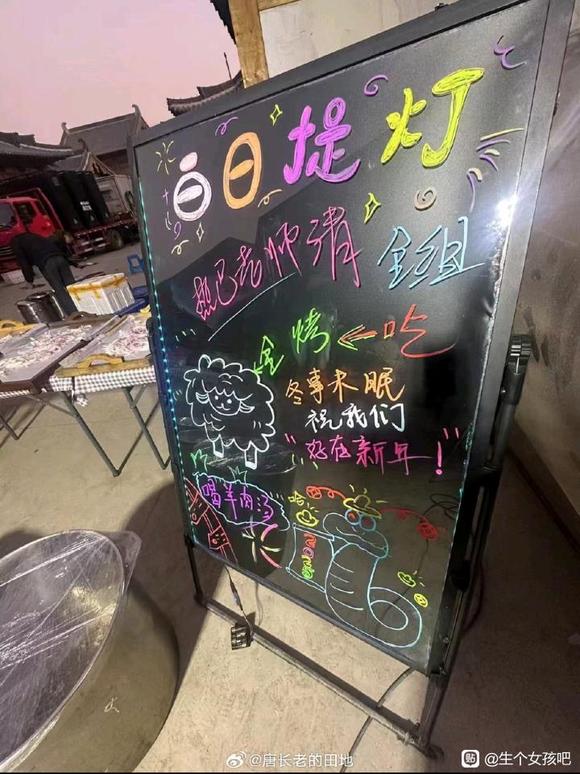 白日提灯
热巴老师请 全组
全烤←吃
冬事未眠
祝我们
"好在新年!"
喝羊肉汤
@唐长老的田地
贴 @生个女孩吧